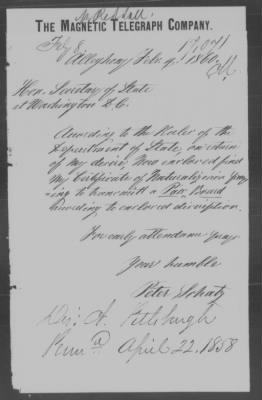 THE MAGNETIC TELEGRAPH COMPANY.
Feb 8 17,071
Allegheny Febr. 9. 1860.
Hon. Secretary of State
at Washington D.C.
According to the Rules of the
Department of State, on return
of my desire, You enclosed find
my Certificate of Naturalization pray
ing to transmitt a Pass Board
according to enclosed discription.
For early attendance pray
Your humble
Peter Schatz
A. Pittsburgh
April 22. 1858